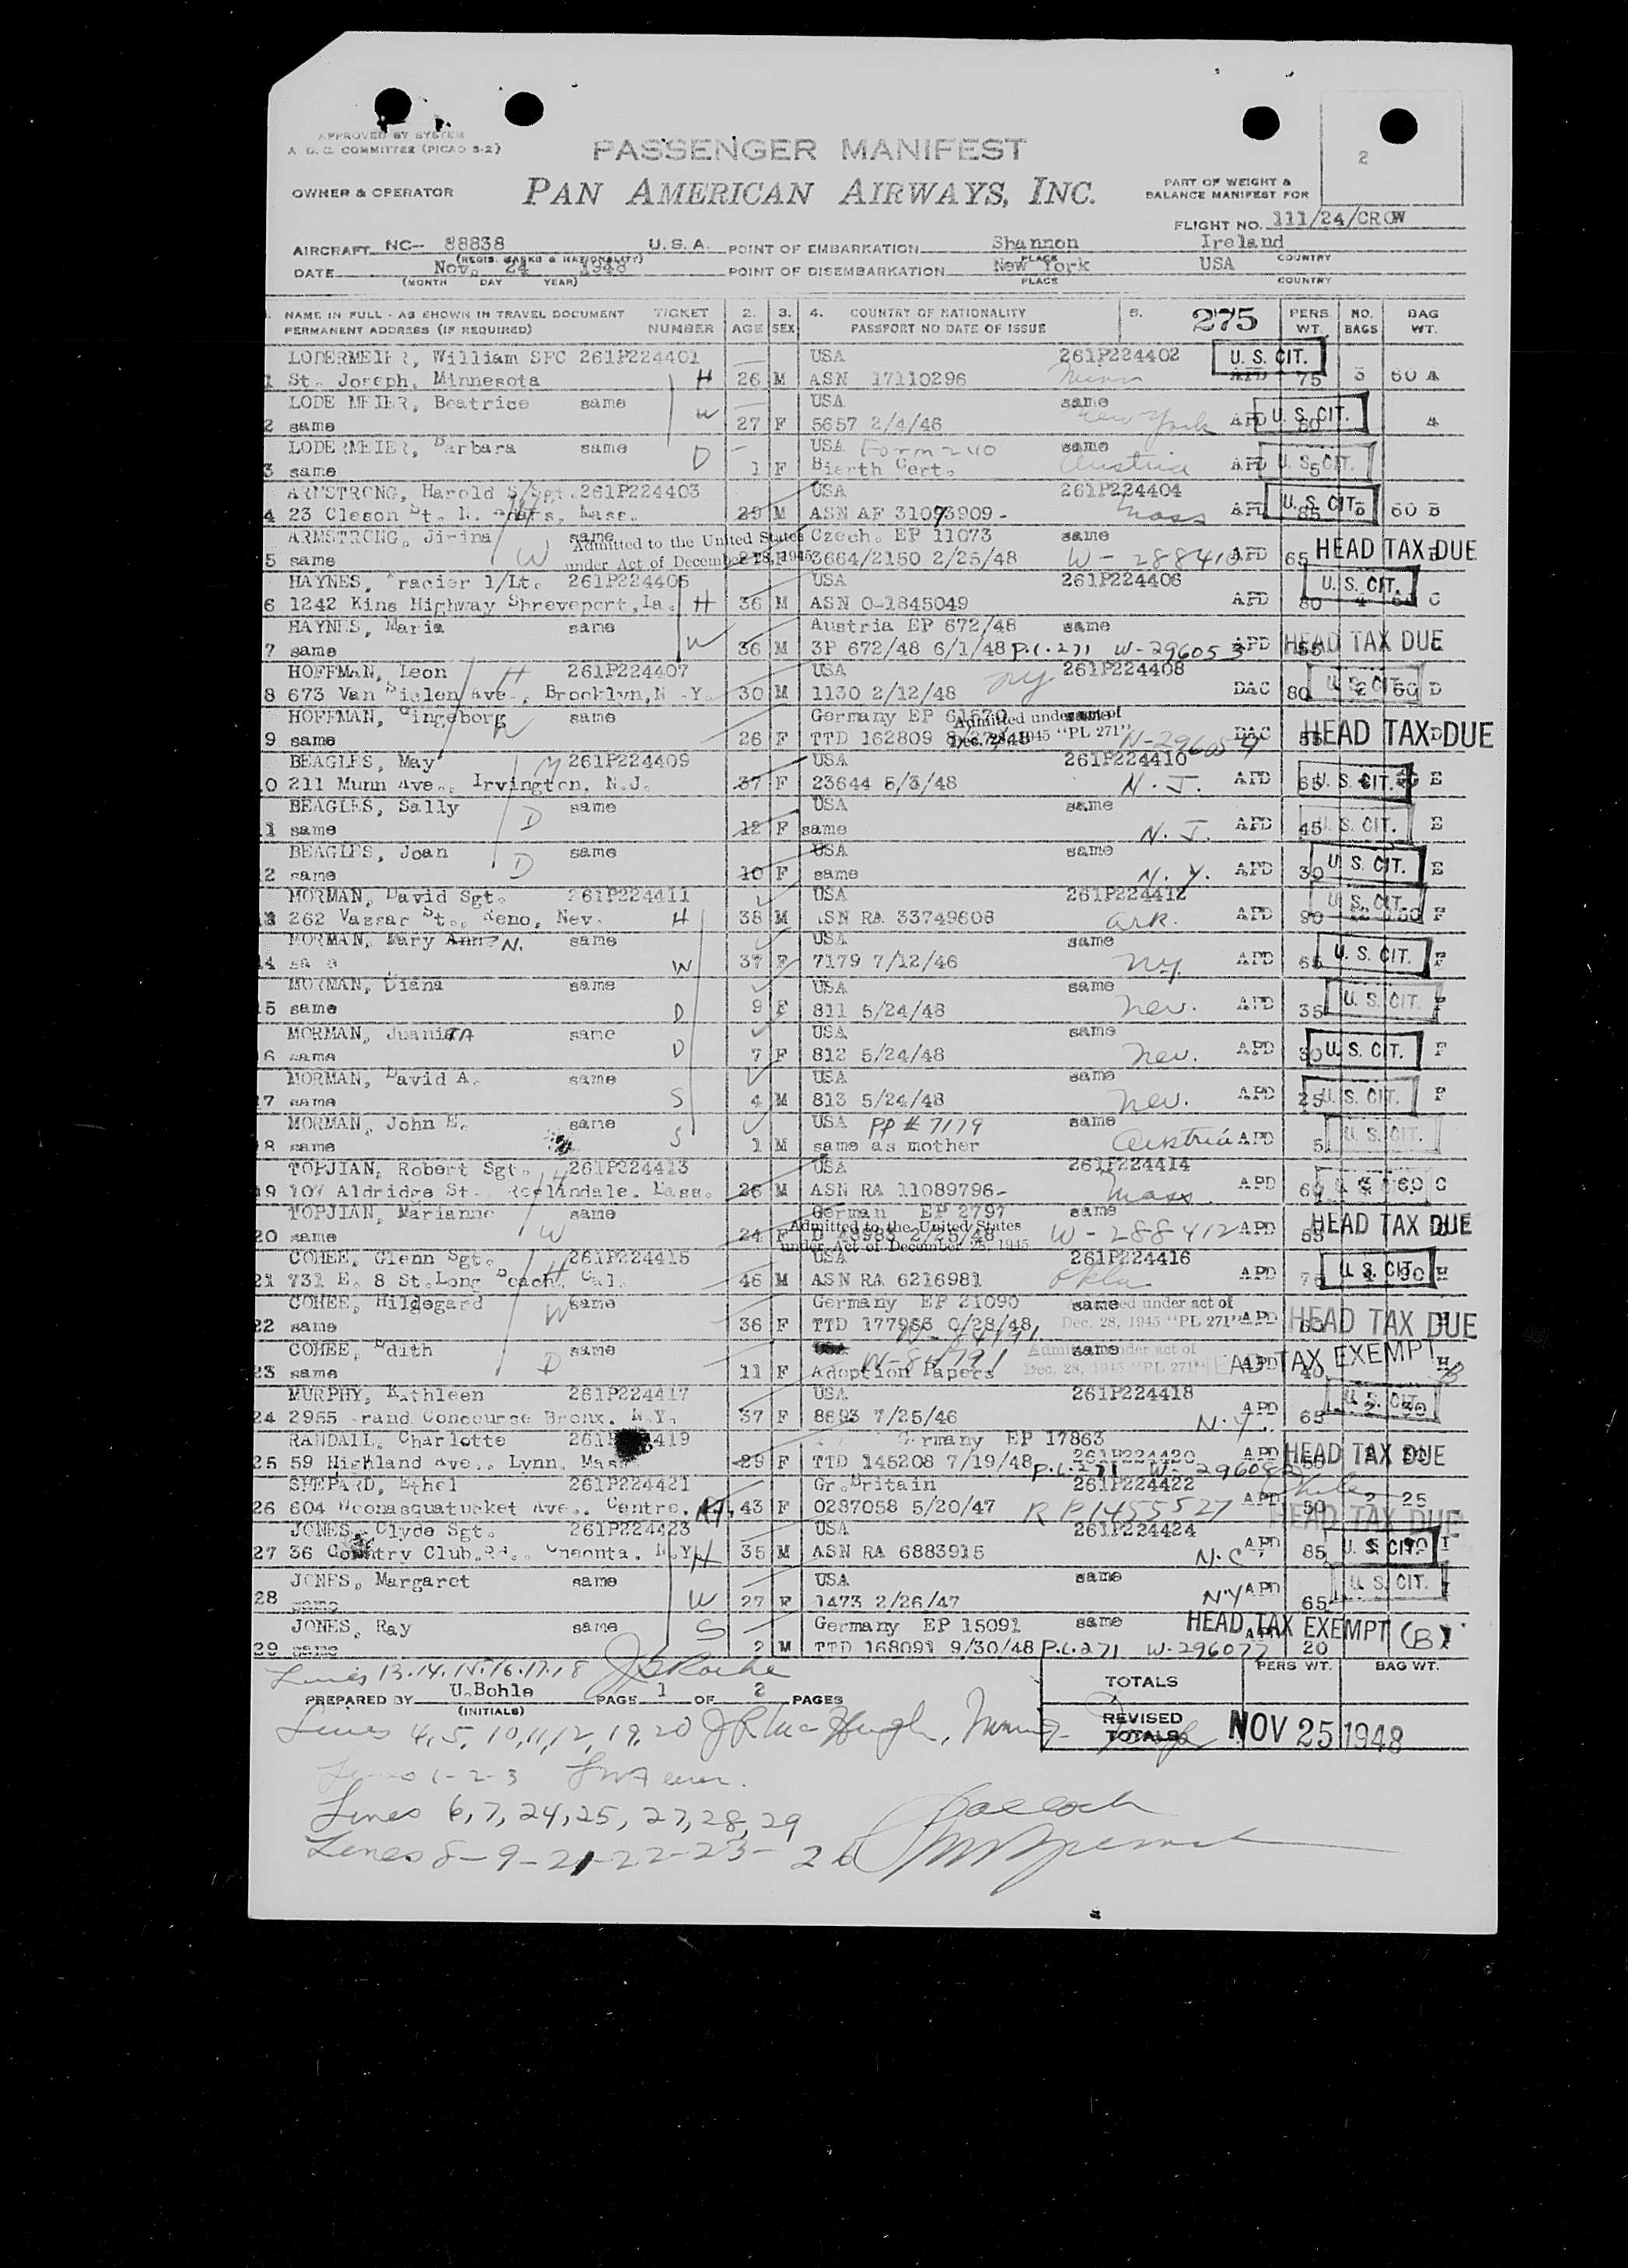 APPROVED BY SYSTEM
A. D. C. COMMITTEE (PICAO S-2)
PASSENGER MANIFEST
2
OWNER & OPERATOR PAN AMERICAN AIRWAYS, INC. PART OF WEIGHT & BALANCE MANIFEST FOR
FLIGHT NO. 111/24/CROW
AIRCRAFT NC-- 88838 U. S. A. POINT OF EMBARKATION Shannon Ireland
(REGIS. MARKS & NATIONALITY) PLACE COUNTRY
DATE Nov. 24 1948 POINT OF DISEMBARKATION New York USA
(MONTH DAY YEAR) PLACE COUNTRY
NAME IN FULL - AS SHOWN IN TRAVEL DOCUMENT TICKET 2. 3. 4. COUNTRY OF NATIONALITY 5. 275 PERS NO. BAG
PERMANENT ADDRESS (IF REQUIRED) NUMBER AGE SEX PASSPORT NO DATE OF ISSUE WT. BAGS WT.
LODERMEIER, William SFC 261P224401 USA 261P224402 U. S. CIT.
1 St. Joseph, Minnesota H 26 M ASN 17110296 Minn APD 75 3 60 A
LODE MEIER, Beatrice same USA same
2 same W 27 F 5657 2/4/46 New York APD 60 U. S. CIT. A
LODERMEIER, Barbara same USA Form 240 same
3 same D 1 F Bierth Cert. Austria APD 5 U. S. CIT.
ARMSTRONG, Harold S/Sgt. 261P224403 USA 261P224404
4 23 Cleson St. N. Mass. H 29 M ASN AF 31093909- Mass APD 85 U. S. CIT. 60 B
ARMSTRONG, Jirina same Czech. EP 11073 same
5 same W Admitted to the United States under Act of December 28, 1945 F 3664/2150 2/25/48 W-288410 APD 65 HEAD TAX DUE
HAYNES, racier 1/Lt. 261P224405 USA 261P224406 U. S. CIT.
6 1242 Kins Highway Shreveport, La. H 36 M ASN O-1845049 APD 80 4 C
HAYNES, Maria same Austria EP 672/48 same
7 same W 36 M 3P 672/48 6/1/48 P.L.271 W-296053 APD HEAD TAX DUE
HOFFMAN, Leon H 261P224407 USA NY 261P224408
8 673 Van Sielen Ave., Brooklyn, N.Y. 30 M 1130 2/12/48 DAC 80 U. S. CIT. 2 60 D
HOFFMAN, Gingeborg W same Germany EP Admitted under act of Dec. 28, 1945 "PL 271" same
9 same 26 F TTD 162809 W-296054 DAC 55 HEAD TAX DUE D
BEAGLES, May M 261P224409 USA 261P224410
10 211 Munn Ave., Irvington, N.J. 37 F 23644 5/3/48 N.J. APD 65 U. S. CIT. E
BEAGLES, Sally same USA same
11 same D 12 F same N.J. APD 45 U. S. CIT. E
BEAGLES, Joan same USA same
12 same D 10 F same N.Y. APD 30 U. S. CIT. E
MORMAN, David Sgt. 261P224411 USA 261P224412
13 262 Vassar St., Reno, Nev. H 38 M ASN RA 33749608 Ark. APD 90 U. S. CIT. F
MORMAN, Mary Ann N. same USA same
14 W 37 F 7179 7/12/46 NY. APD 65 U. S. CIT. F
MORMAN, Diana same USA same
15 same D 9 F 811 5/24/48 Nev. APD 35 U. S. CIT. F
MORMAN, JuaniTA same USA same
16 same D 7 F 812 5/24/48 Nev. APD 30 U. S. CIT. F
MORMAN, David A. same USA same
17 same S 4 M 813 5/24/48 Nev. APD 25 U. S. CIT. F
MORMAN, John E. same USA PP # 7179 same
18 same S 1 M same as mother Austria APD 5 U. S. CIT.
TOPJIAN, Robert Sgt. 261P224413 USA 261P224414
19 107 Aldridge St. Roslindale, Mass. H 26 M ASN RA 11089796- Mass APD 60 G
TOPJIAN, Marianne same German EP 2797 same
20 same W 24 F Admitted to the United States under Act of December 28, 1945 D 48983 2/25/48 W-288412 APD 55 HEAD TAX DUE
COHEE, Glenn Sgt. 261P224415 USA 261P224416
21 731 E. 8 St. Long Beach, Cal. H 46 M ASN RA 6216981 Okla APD U. S. CIT. H
COHEE, Hildegard same Germany EP 21090 same Admitted under act of
22 same W 36 F TTD 177965 Dec. 28, 1945 "PL 271" APD HEAD TAX DUE
COHEE, Edith same USA same Admitted under act of
23 same D 11 F Adoption Papers Dec. 28, 1945 "PL 271" APD 40 HEAD TAX EXEMPT
MURPHY, Kathleen 261P224417 USA 261P224418
24 2965 Grand Concourse Bronx, N.Y. 37 F 8693 7/25/46 N.Y. APD 65 2 U. S. CIT.
RANDALL, Charlotte 261P 419 Germany EP 17863
25 59 Highland Ave., Lynn, Mass 29 F TTD 145208 7/19/48 P.L.271 261P224420 APD HEAD TAX DUE
SHEPARD, Ethel 261P224421 Gr. Britain 261P224422
26 604 Woonasquatucket Ave., Centre, RI, 43 F 0287058 5/20/47 RP1455527 APD 50 2 25 HEAD TAX DUE
JONES, Clyde Sgt. 261P224423 USA 261P224424
27 36 Country Club Rd., Oneonta, N.Y. H 35 M ASN RA 6883915 N.C. APD 85 U. S. CIT. I
JONES, Margaret same USA same
28 same W 27 F 1473 2/26/47 NY APD 65 U. S. CIT.
JONES, Ray same Germany EP 15091 same HEAD TAX EXEMPT (B)
29 same S 2 M TTD 168091 9/30/48 P.L.271 W-296077 20
Lines 13.14.15.16.17.18 PERS WT. BAG WT.
TOTALS
PREPARED BY U.Bohle PAGE 1 OF 2 PAGES
(INITIALS)
REVISED TOTALS
NOV 25 1948
Lines 4,5,10,11,12,19,20
Lines 1-2-3
Lines 6,7,24,25,27,28,29
Lines 8-9-21-22-23-26